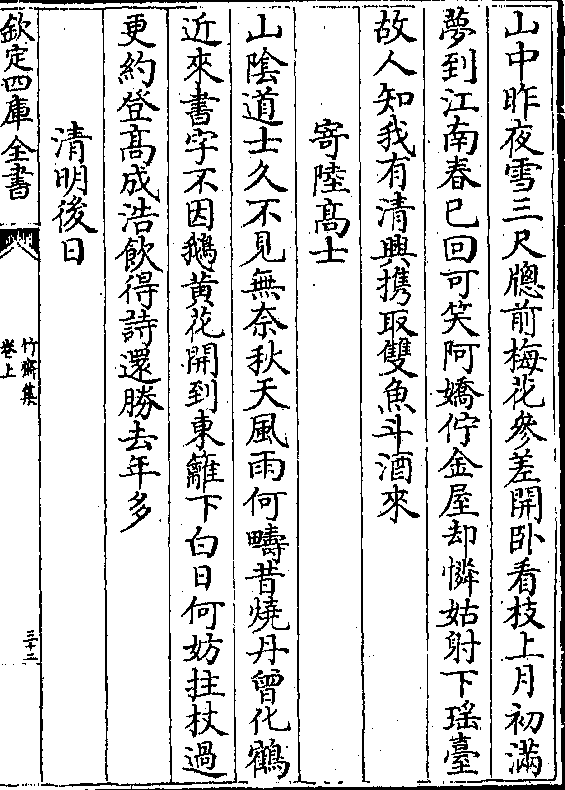 山中昨夜雪三尺牕前梅花參差開卧看枝上月初滿
夢到江南春已回可笑阿嬌佇金屋却憐姑射下瑤臺
故人知我有清興携取雙魚斗酒來
寄陸髙士
山陰道士久不見無奈秋天風雨何疇昔燒丹曾化鶴
近來書字不因鵝黄花開到東籬下白日何妨拄杖過
更約登髙成浩飲得詩還勝去年多
清明後日
欽定四庫全書
竹齋集
卷上
三十二